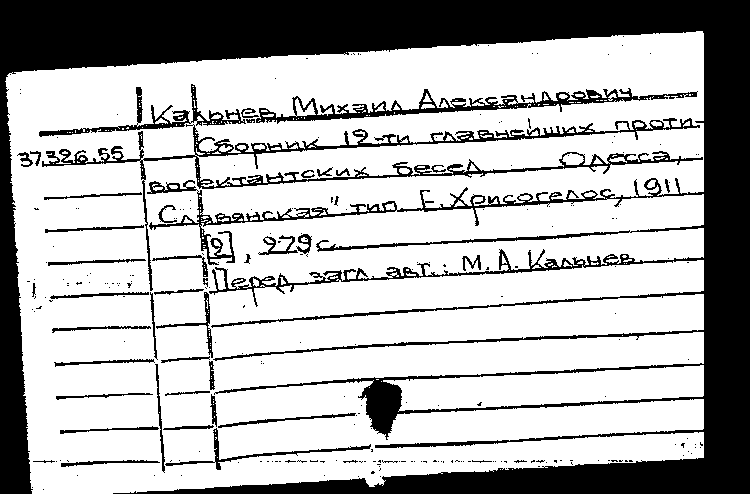 Кальнев, Михаил Александрович.
37.326.55
Сборник 12-ти главнейших проти-
восектантских бесед. Одесса,
"Славянская" тип. Е. Хрисогелос, 1911
[2], 279 с.
Перед загл. авт.: М. А. Кальнев.